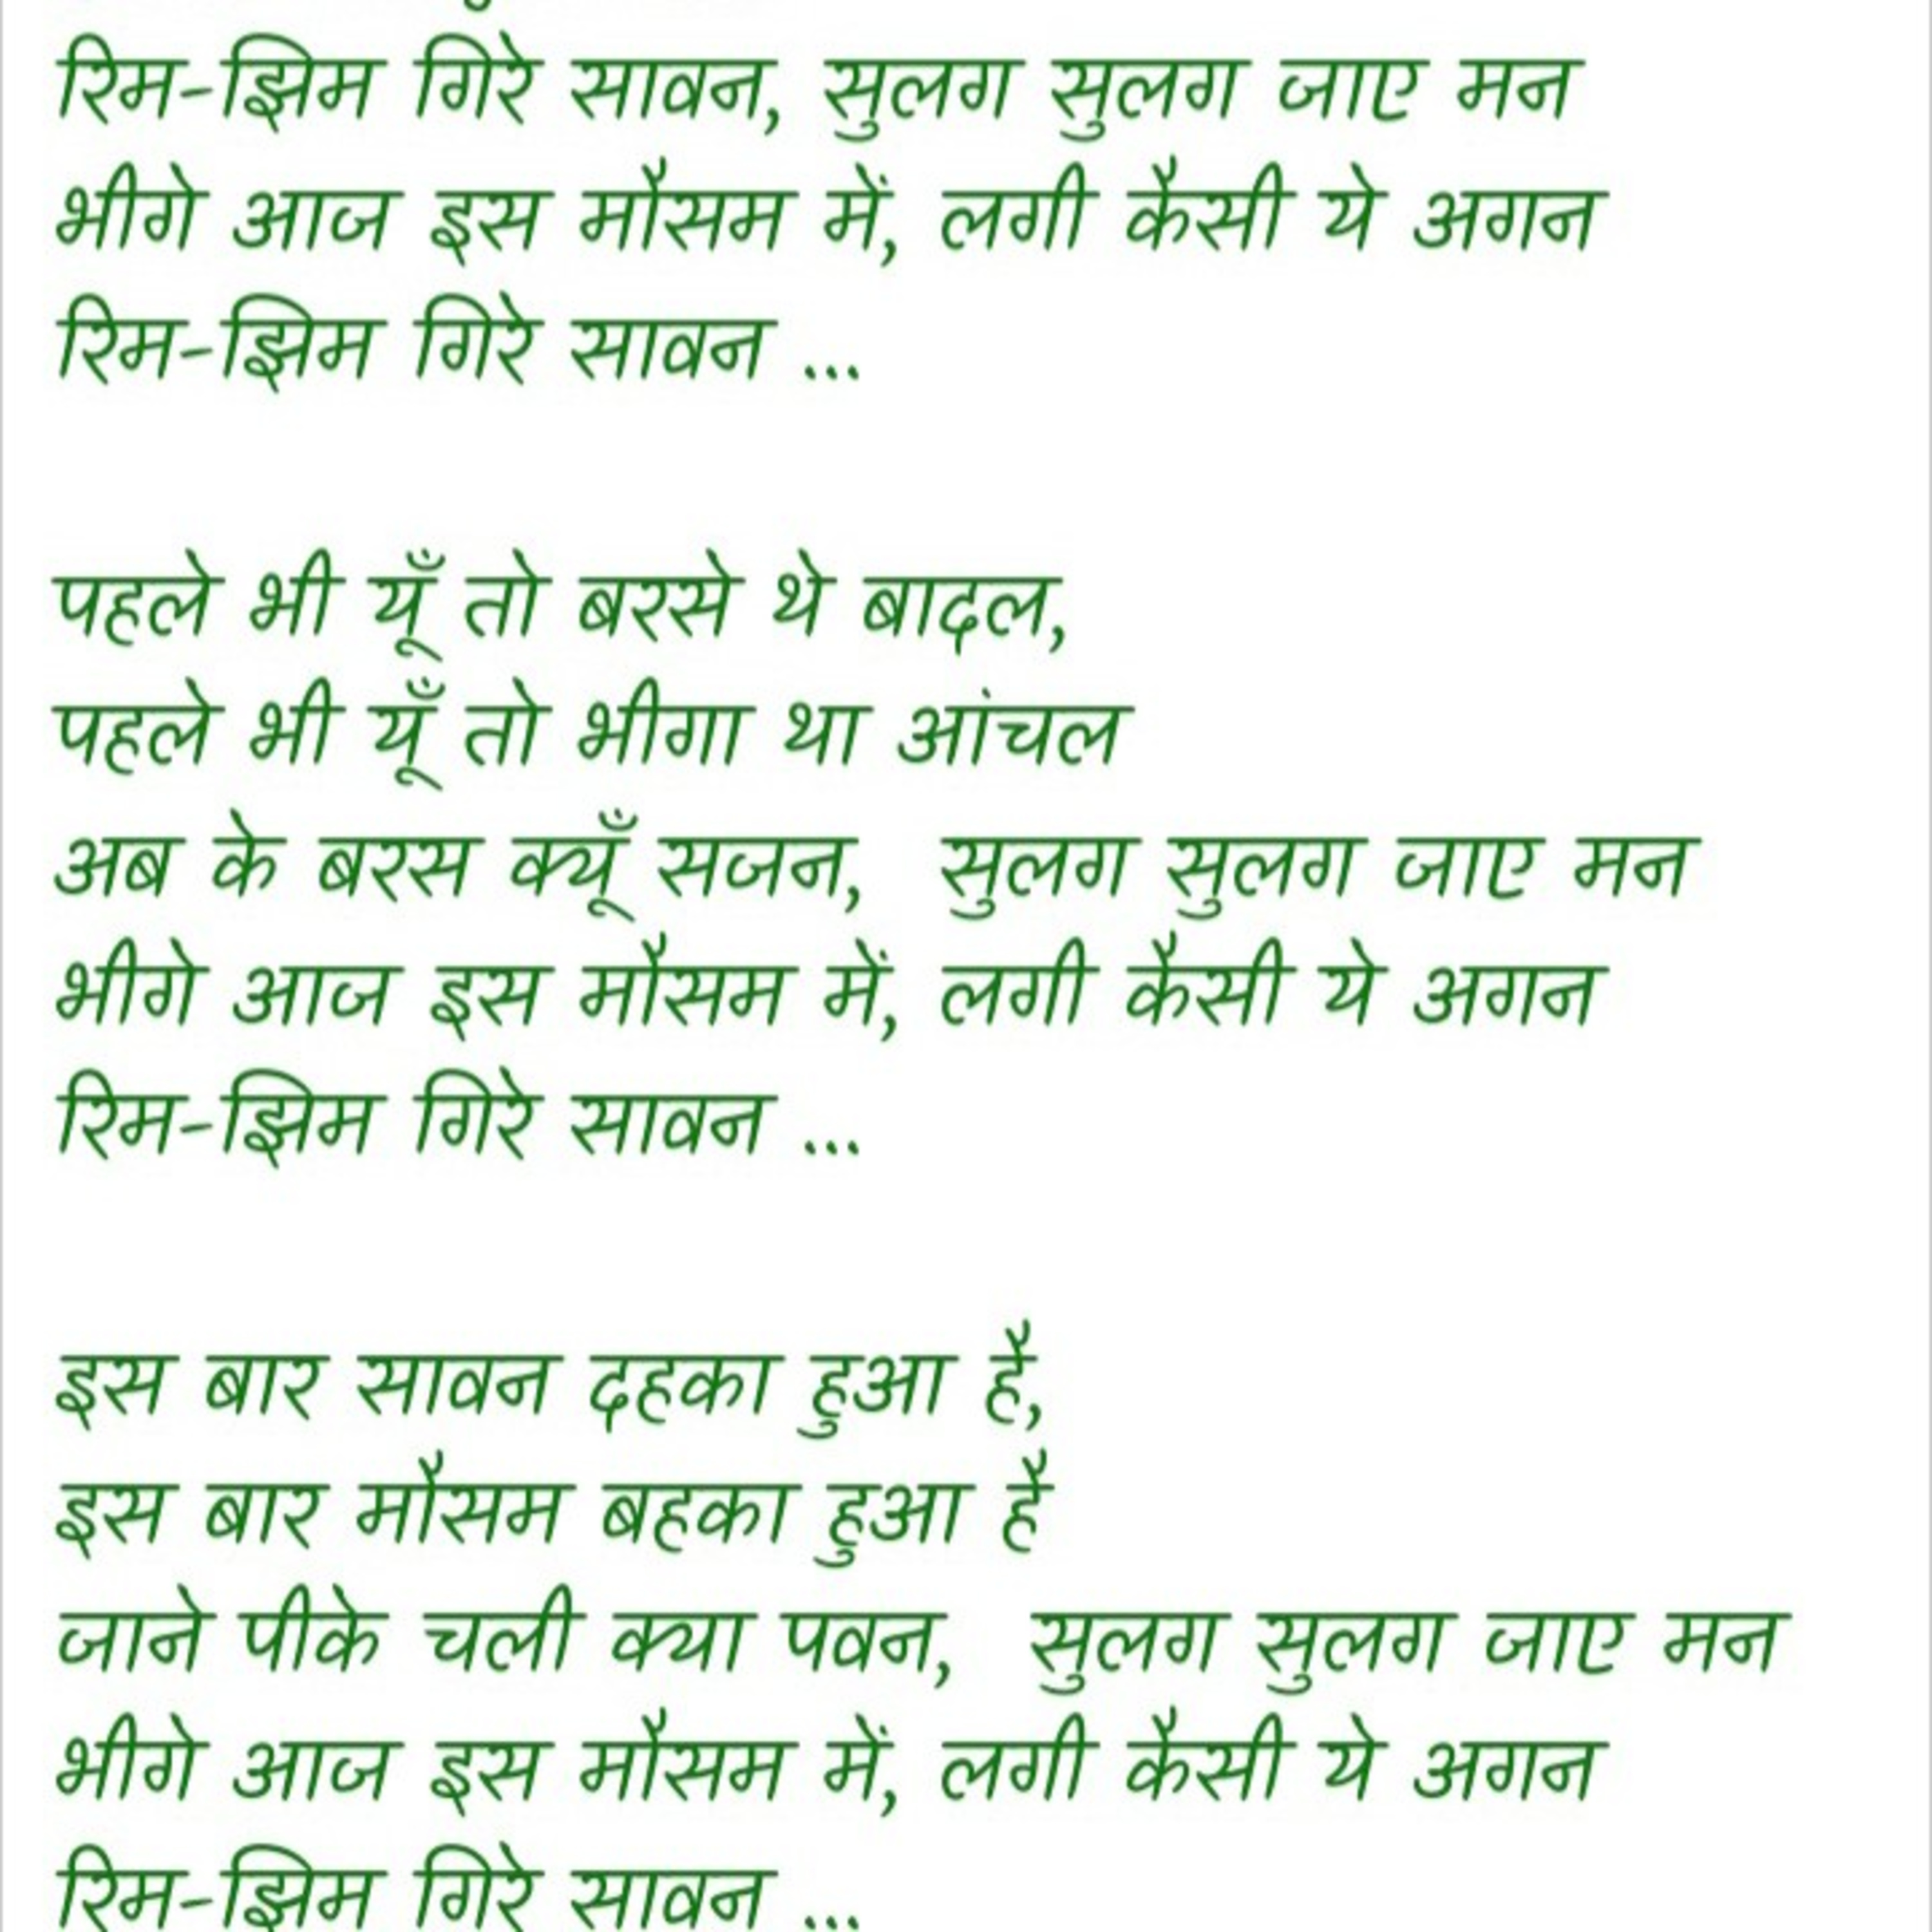 रिम-झिम गिरे सावन, सुलग सुलग जाए मन
भीगे आज इस मौसम में, लगी कैसी ये अगन
रिम-झिम गिरे सावन ...
पहले भी यूँ तो बरसे थे बादल,
पहले भी यूँ तो भीगा था आंचल
अब के बरस क्यूँ सजन,  सुलग सुलग जाए मन
भीगे आज इस मौसम में, लगी कैसी ये अगन
रिम-झिम गिरे सावन ...
इस बार सावन दहका हुआ है,
इस बार मौसम बहका हुआ है
जाने पीके चली क्या पवन,  सुलग सुलग जाए मन
भीगे आज इस मौसम में, लगी कैसी ये अगन
रिम-झिम गिरे सावन ...